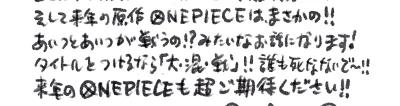 そして来年の原作ONEPIECEは、まさかの!!
あいつとあいつが戦うの!?みたいなお話になります!
タイトルをつけるなら「大・混・戦」!!誰も死なないで〜!!
来年のONEPIECEも超ご期待ください!!